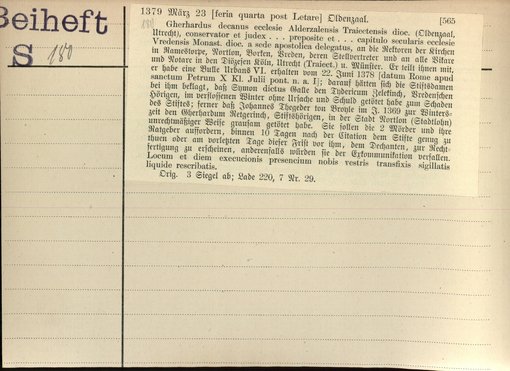 Beiheft
S 180
1379 März 23 [feria quarta post Letare] Oldenzaal. [565
Gherhardus decanus ecclesie Alderzalensis Traiectensis dioc. (Oldenzaal,
Utrecht), conservator et judex . . . preposite et . . . capitulo secularis ecclesie
Vredensis Monast. dioc. a sede apostolica delegatus, an die Rektoren der Kirchen
in Ramestorpe, Nortlon, Borken, Vreden, deren Stellvertreter und an alle Vikare
und Notare in den Diözesen Köln, Utrecht (Traiect.) u. Münster. Er teilt ihnen mit,
er habe eine Bulle Urbans VI. erhalten vom 22. Juni 1378 [datum Rome apud
sanctum Petrum X Kl. Julii pont. n. a. I]; darauf hätten sich die Stiftsdamen
bei ihm beklagt, daß Symon dictus Gasse den Thdericum Zelekinch, Vredenschen
Hörigen, im verflossenen Winter ohne Ursache und Schuld getötet habe zum Schaden
des Stiftes; ferner daß Johannes Thegeder ton Broyle im J. 1369 zur Winters-
zeit den Gherhardum Retgerinch, Stiftshörigen, in der Stadt Nortlon (Stadtlohn)
unrechtmäßiger Weise grausam getötet habe. Sie sollen die 2 Mörder und ihre
Ratgeber auffordern, binnen 10 Tagen nach der Citation dem Stifte genug zu
thuen oder am vorletzten Tage dieser Frist vor ihm, dem Dechanten, zur Recht-
fertigung zu erscheinen, anderenfalls würden sie der Exkommunikation verfallen.
Locum et diem execucionis presencium nobis vestris transfixis sigillatis
liquide rescribatis.
Orig. 3 Siegel ab; Lade 220, 7 Nr. 29.